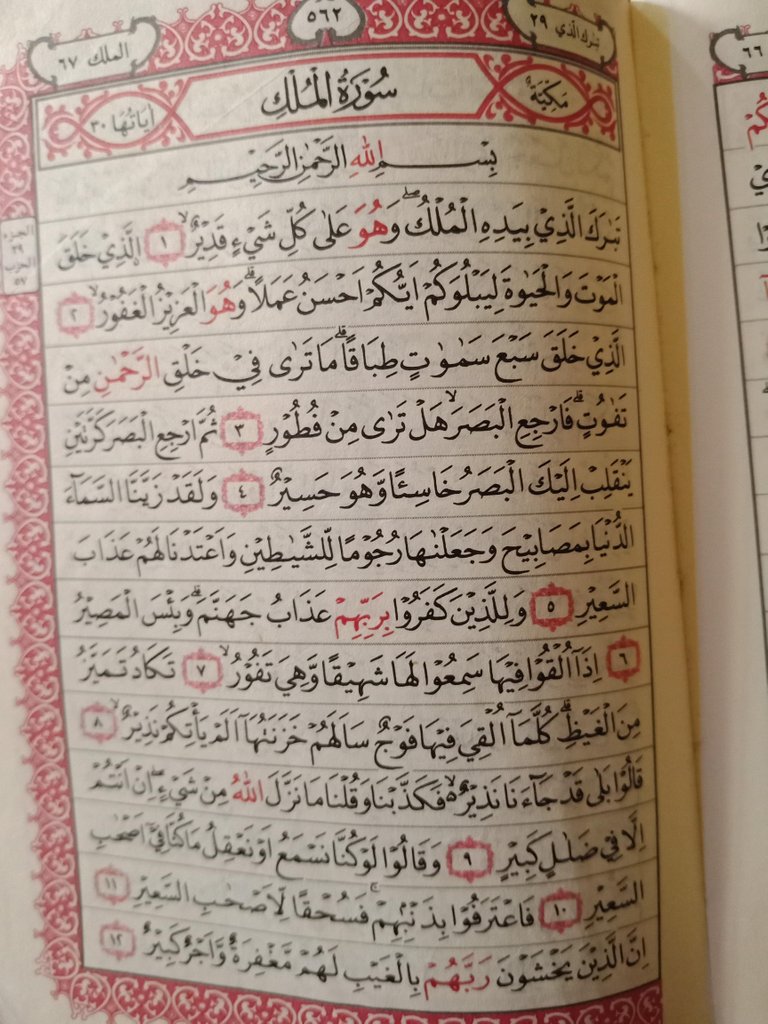 تبٰرك الّذي ٢٩
٥٦٢
الملك ٦٧
٦٦
مَكِّيَّة
سُوْرَةُ الْمُلْكِ
اٰيَاتُهَا ٣٠
بِسْمِ اللهِ الرَّحْمٰنِ الرَّحِيْمِ
تَبٰرَكَ الَّذِيْ بِيَدِهِ الْمُلْكُۖ وَهُوَ عَلٰى كُلِّ شَيْءٍ قَدِيْرٌۙ ١ اۨلَّذِيْ خَلَقَ
الْمَوْتَ وَالْحَيٰوةَ لِيَبْلُوَكُمْ اَيُّكُمْ اَحْسَنُ عَمَلًاۗ وَهُوَ الْعَزِيْزُ الْغَفُوْرُۙ ٢
الَّذِيْ خَلَقَ سَبْعَ سَمٰوٰتٍ طِبَاقًاۗ مَا تَرٰى فِيْ خَلْقِ الرَّحْمٰنِ مِنْ
تَفٰوُتٍۗ فَارْجِعِ الْبَصَرَۙ هَلْ تَرٰى مِنْ فُطُوْرٍ ٣ ثُمَّ ارْجِعِ الْبَصَرَ كَرَّتَيْنِ
يَنْقَلِبْ اِلَيْكَ الْبَصَرُ خَاسِئًا وَّهُوَ حَسِيْرٌ ٤ وَلَقَدْ زَيَّنَّا السَّمَاۤءَ
الدُّنْيَا بِمَصَابِيْحَ وَجَعَلْنٰهَا رُجُوْمًا لِّلشَّيٰطِيْنِ وَاَعْتَدْنَا لَهُمْ عَذَابَ
السَّعِيْرِ ٥ وَلِلَّذِيْنَ كَفَرُوْا بِرَبِّهِمْ عَذَابُ جَهَنَّمَۗ وَبِئْسَ الْمَصِيْرُ
٦ اِذَآ اُلْقُوْا فِيْهَا سَمِعُوْا لَهَا شَهِيْقًا وَّهِيَ تَفُوْرُۙ ٧ تَكَادُ تَمَيَّزُ
مِنَ الْغَيْظِۗ كُلَّمَآ اُلْقِيَ فِيْهَا فَوْجٌ سَاَلَهُمْ خَزَنَتُهَآ اَلَمْ يَأْتِكُمْ نَذِيْرٌۙ ٨
قَالُوْا بَلٰى قَدْ جَاۤءَنَا نَذِيْرٌ ەۙ فَكَذَّبْنَا وَقُلْنَا مَا نَزَّلَ اللهُ مِنْ شَيْءٍۖ اِنْ اَنْتُمْ
اِلَّا فِيْ ضَلٰلٍ كَبِيْرٍ ٩ وَقَالُوْا لَوْ كُنَّا نَسْمَعُ اَوْ نَعْقِلُ مَا كُنَّا فِيْٓ اَصْحٰبِ
السَّعِيْرِ ١٠ فَاعْتَرَفُوْا بِذَنْۢبِهِمْۚ فَسُحْقًا لِّاَصْحٰبِ السَّعِيْرِ ١١
اِنَّ الَّذِيْنَ يَخْشَوْنَ رَبَّهُمْ بِالْغَيْبِ لَهُمْ مَّغْفِرَةٌ وَّاَجْرٌ كَبِيْرٌ ١٢
الجزء
٢٩
الحزب
٥٧